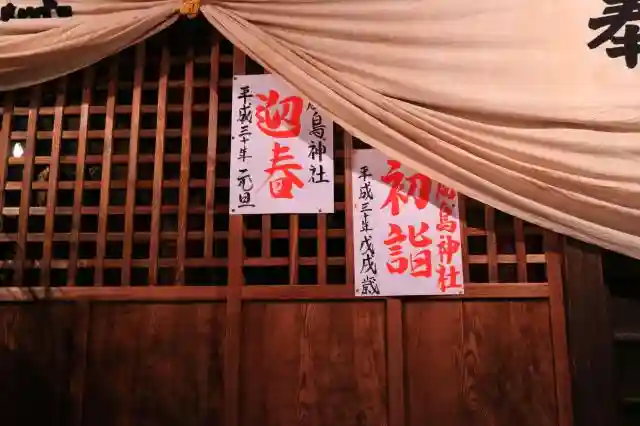 奉
島神社
迎春
平成三十年 元旦
島神社
初詣
平成三十年戊戌歳